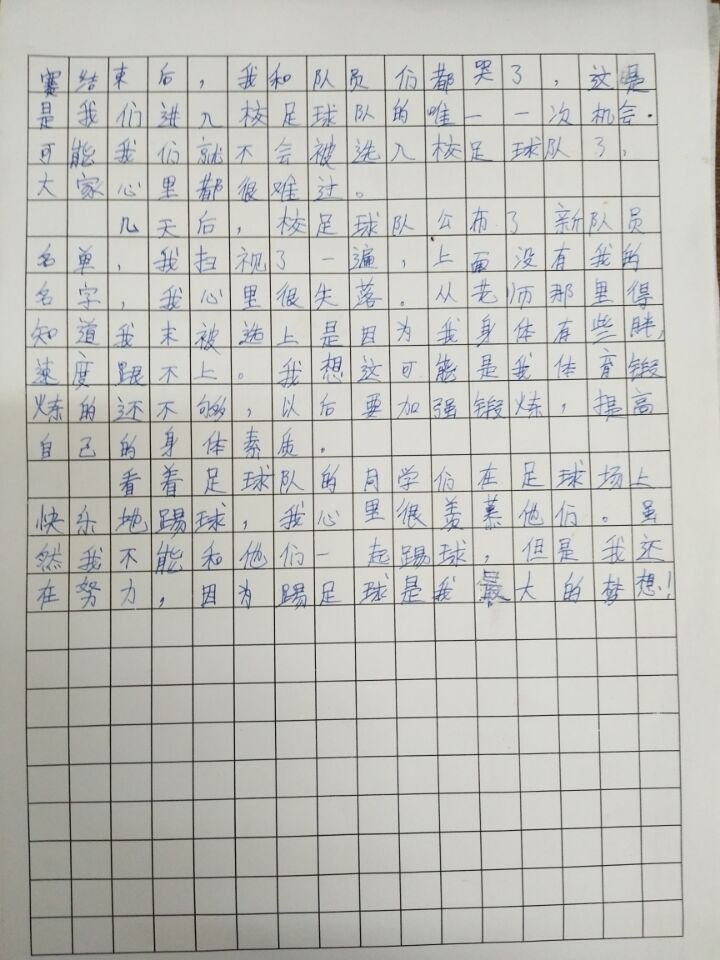 赛结束后，我和队员们都哭了，这是
是我们进入校足球队的唯一一次机会.
可能我们就不会被选入校足球队了，
大家心里都很难过。
几天后，校足球队公布了新队员
名单，我扫视了一遍，上面没有我的
名字，我心里很失落。从老师那里得
知道我未被选上是因为我身体有些胖，
速度跟不上。我想这可能是我体育锻
炼的还不够，以后要加强锻炼，提高
自己的身体素质。
看着足球队的同学们在足球场上
快乐地踢球，我心里很羡慕他们。虽
然我不能和他们一起踢球，但是我还
在努力，因为踢足球是我最大的梦想！